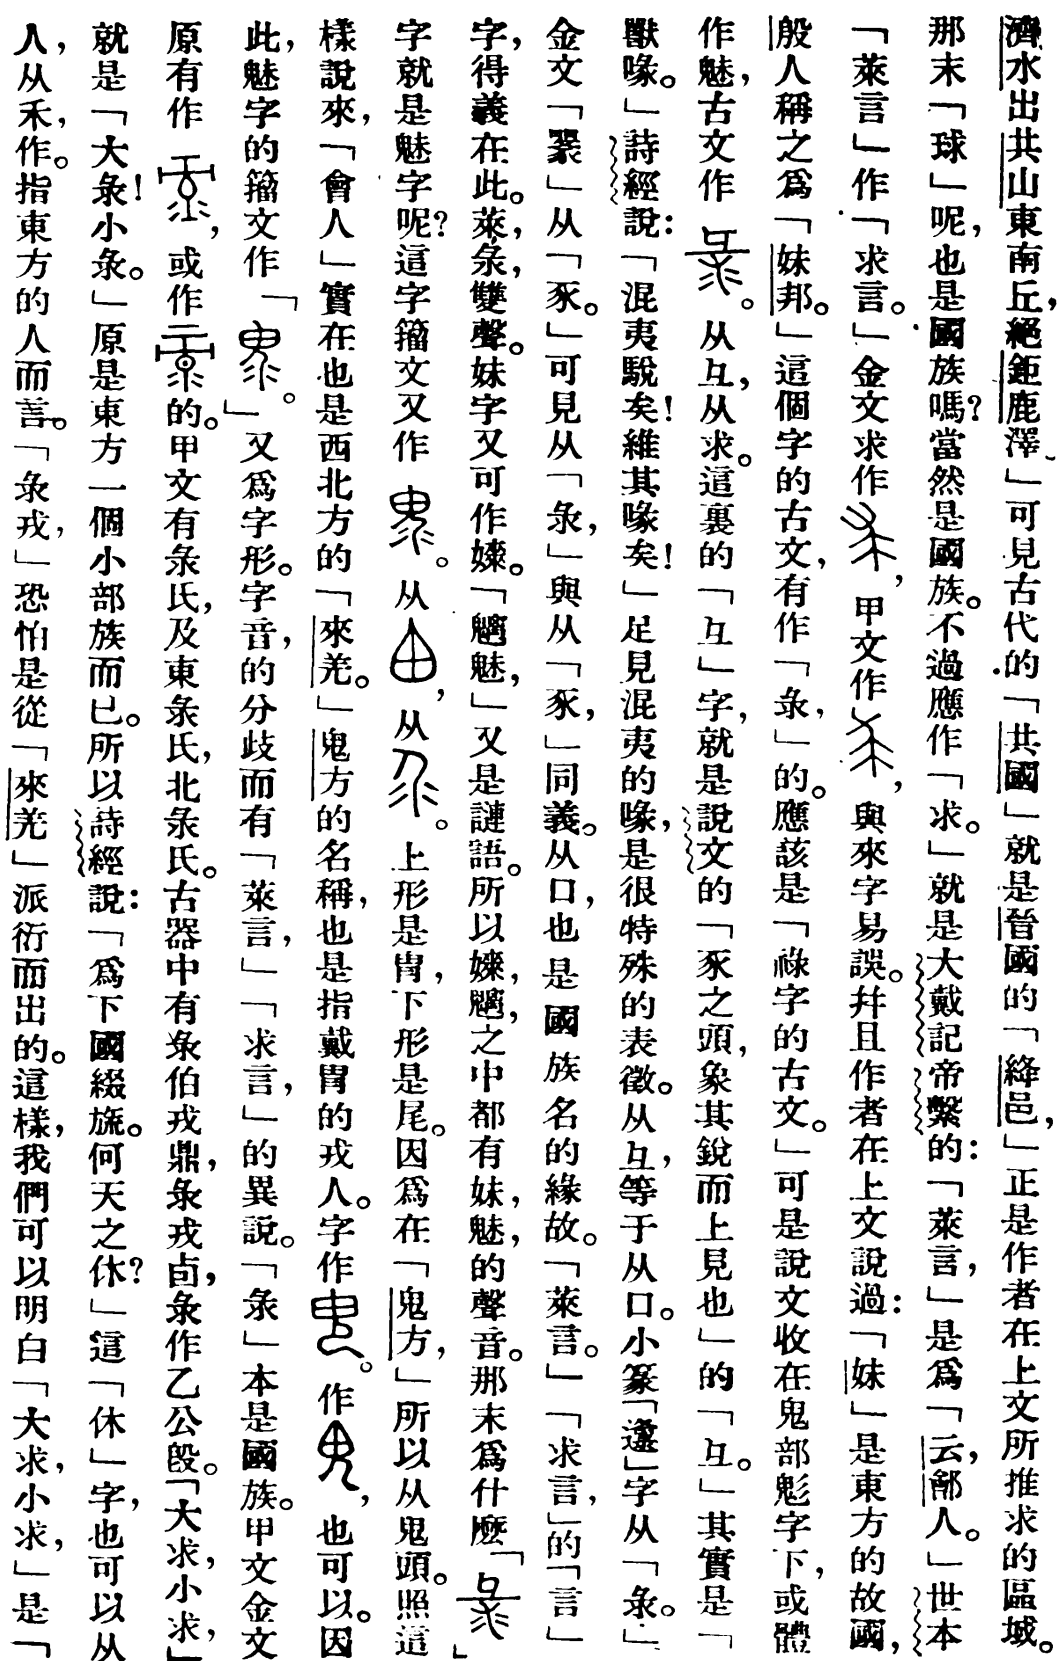 濟水出共山東南丘，絕鉅鹿澤」可見古代的「共國」就是晉國的「絳邑，」正是作者在上文所推求的區域。
那末「球」呢，也是國族嗎？當然是國族。不過應作「求。」就是大戴記帝繫的：「萊言，」是爲「云，鄶人。」世本
「萊言」作「求言。」金文求作，甲文作，與來字易誤。幷且作者在上文說過：「妹」是東方的故國，
殷人稱之爲「妹邦。」這個字的古文，有作「彔，」的。應該是「祿字的古文。」可是說文收在鬼部鬽字下，或體
作魅，古文作。从彑，从求。這裏的「彑」字，就是說文的「豕之頭，象其銳而上見也」的「彑。」其實是「
獸喙。」詩經說：「混夷駾矣！維其喙矣！」足見混夷的喙，是很特殊的表徵。从彑，等于从口。小篆「邍」字从「彔。」
金文「」从「豕。」可見从「彔，」與从「豕，」同義。从口，也是國族名的緣故。「萊言。」「求言，」的「言」
字，得義在此。萊，彔，雙聲。妹字又可作婡。「魑魅，」又是謰語。所以婡，魑，之中都有妹，魅，的聲音。那末爲什麽「」
字就是魅字呢？這字籀文又作。从，从。上形是冑，下形是尾。因爲在「鬼方，」所以从鬼頭。照這
樣說來，「會人」實在也是西北方的「來羌。」鬼方的名稱，也是指戴冑的戎人。字作。作，也可以。因
此，魅字的籀文作「。」又爲字形。字音，的分歧而有「萊言，」「求言，」的異說。「彔」本是國族。甲文金文
原有作，或作的。甲文有彔氏，及東彔氏，北彔氏。古器中有彔伯戎鼎，彔戎卣，彔作乙公𣪘。「大求，小求，」
就是「大彔！小彔。」原是東方一個小部族而已。所以詩經說：「爲下國綴旒。何天之休？」這「休」字，也可以从
人，从禾，作。指東方的人而言。「彔戎，」恐怕是從「來羌」派衍而出的。這樣，我們可以明白「大求，小求，」是「